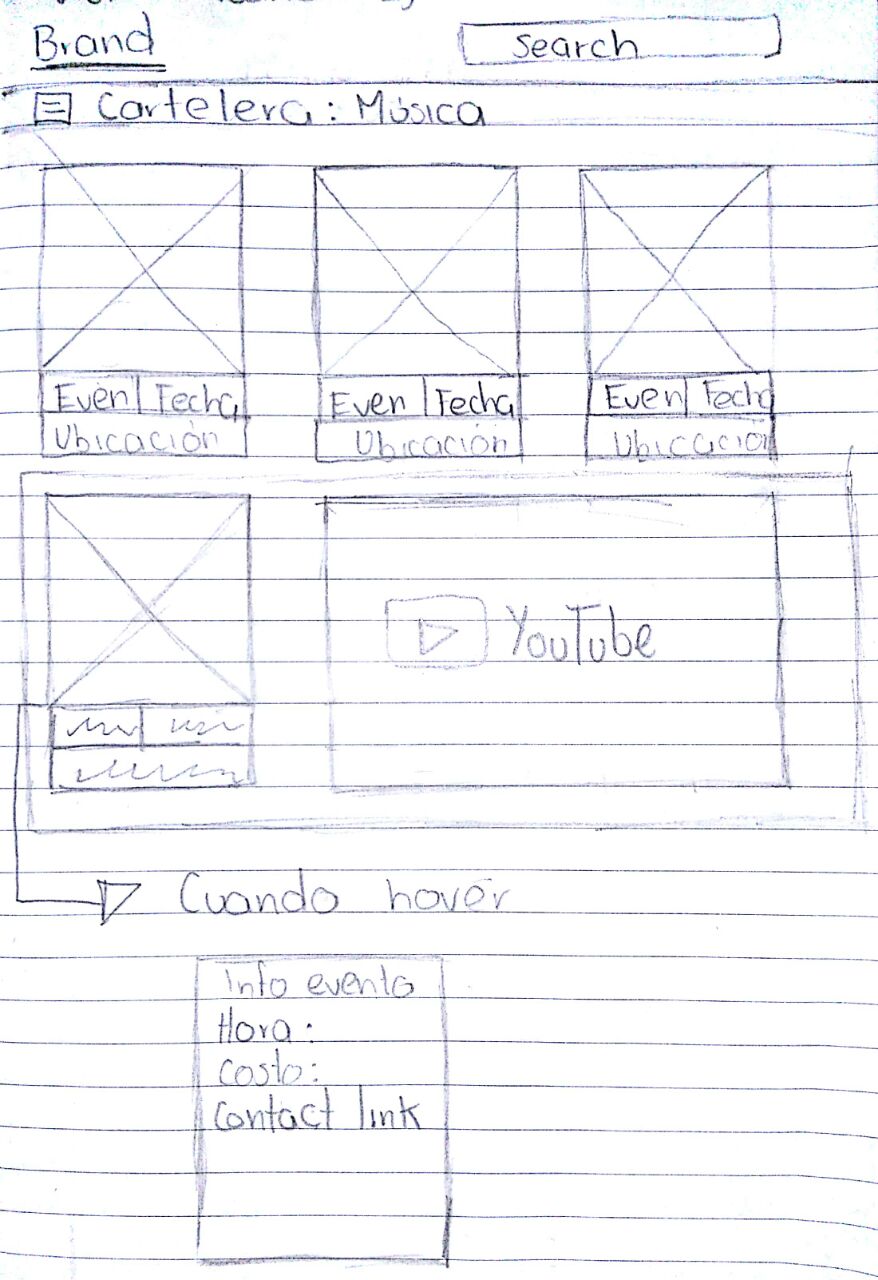 Brand
search
Cartelera: Música
Even Fecha
Ubicación
Even Fecha
Ubicación
Even Fecha
Ubicación
YouTube
Cuando hover
Info evento
Hora:
Costo:
Contact link